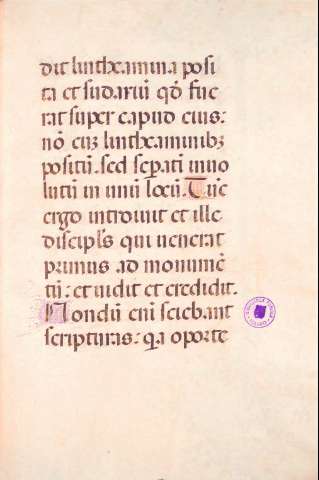 dit lintheamina posi
ta et sudariū qđ fue
rat super capud eius:
nō cū linthaminibꝫ
positū. sed sepati inuo
lutū in unū locū. Tūc
ergo introiuit et ille
discipl̄s qui uenerat
primus ad monumē
tū: et uidit et credidit.
Nondū eni sciebant
scripturas: qa oporte